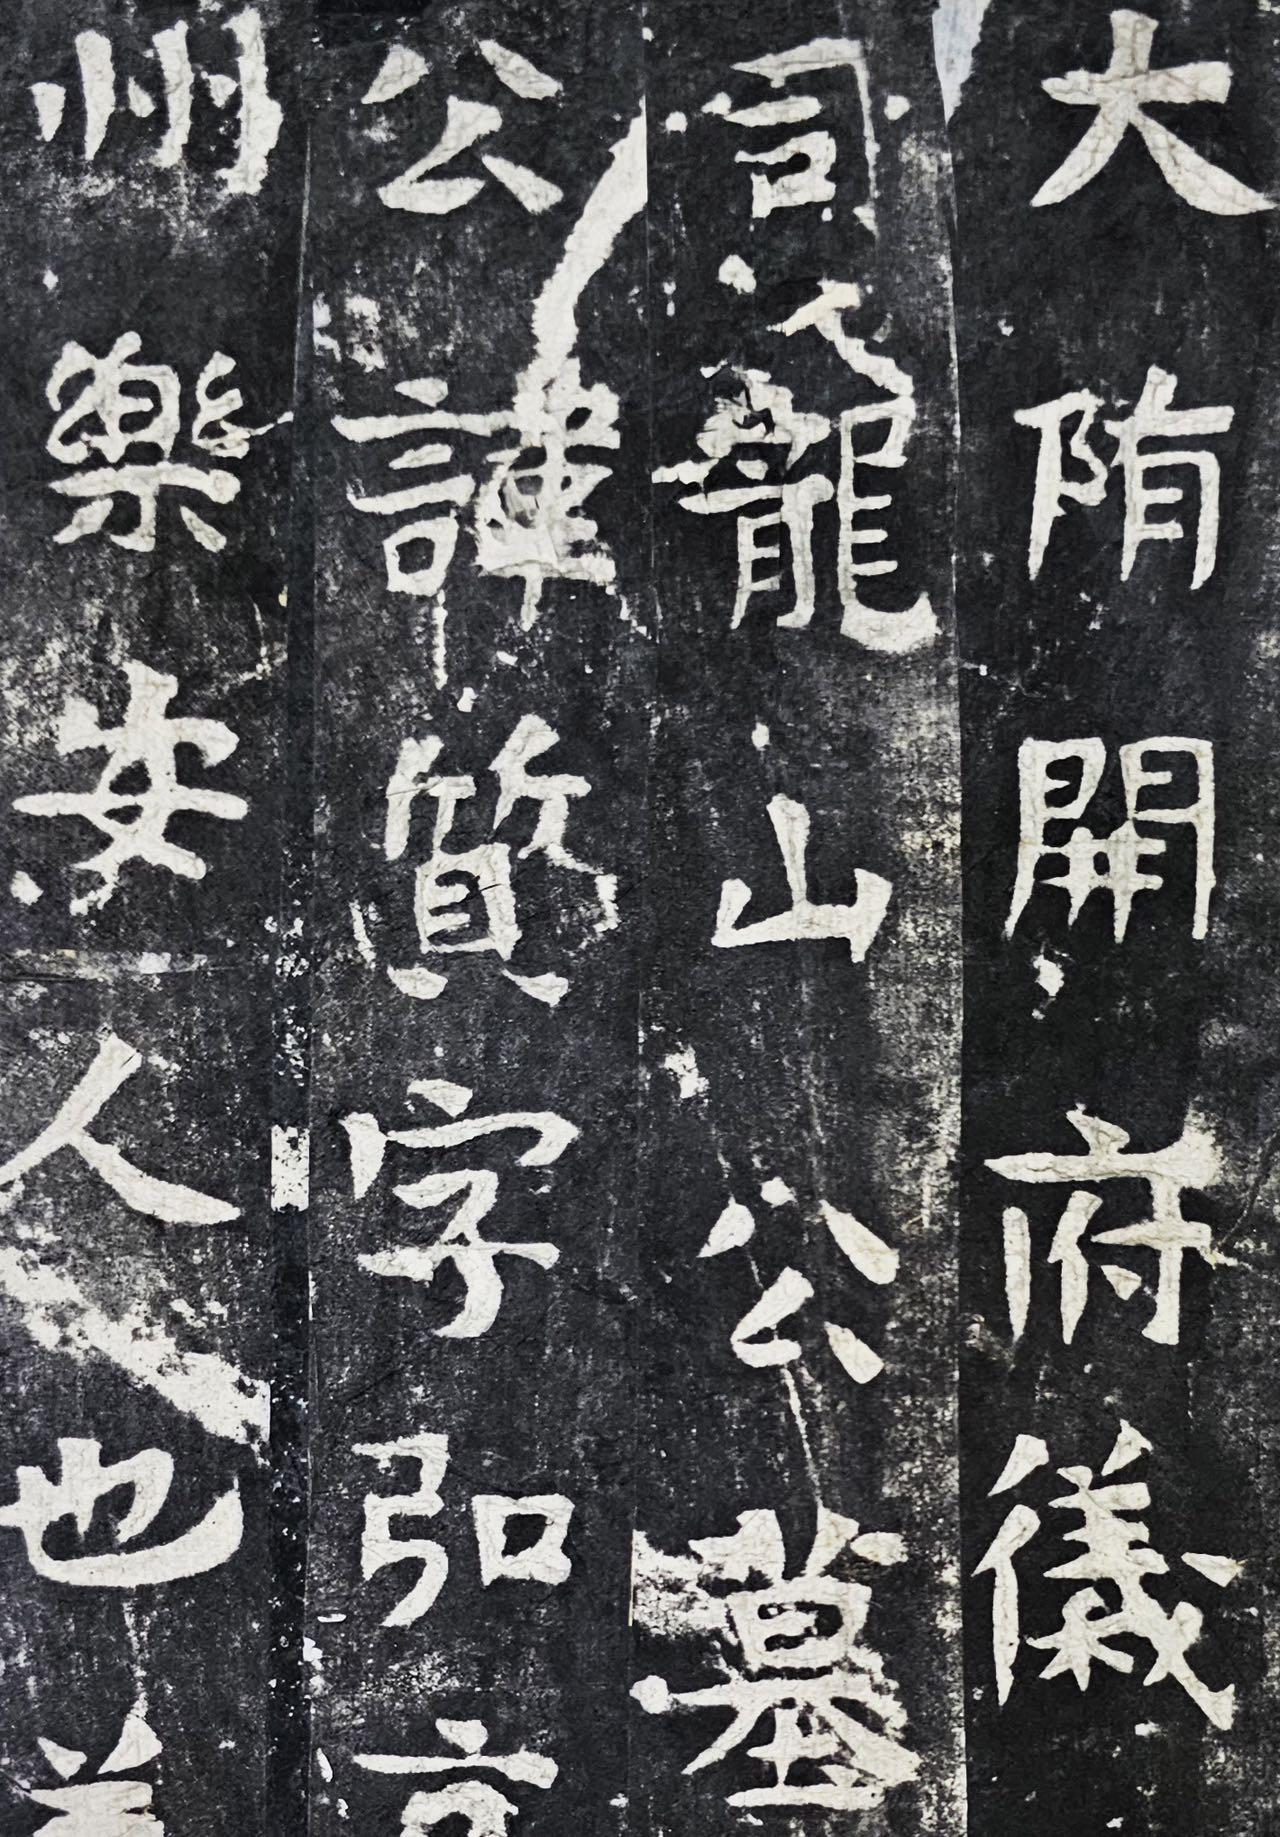 大陏開府儀
司龍山公墓
公諱質字弘
州樂安人也